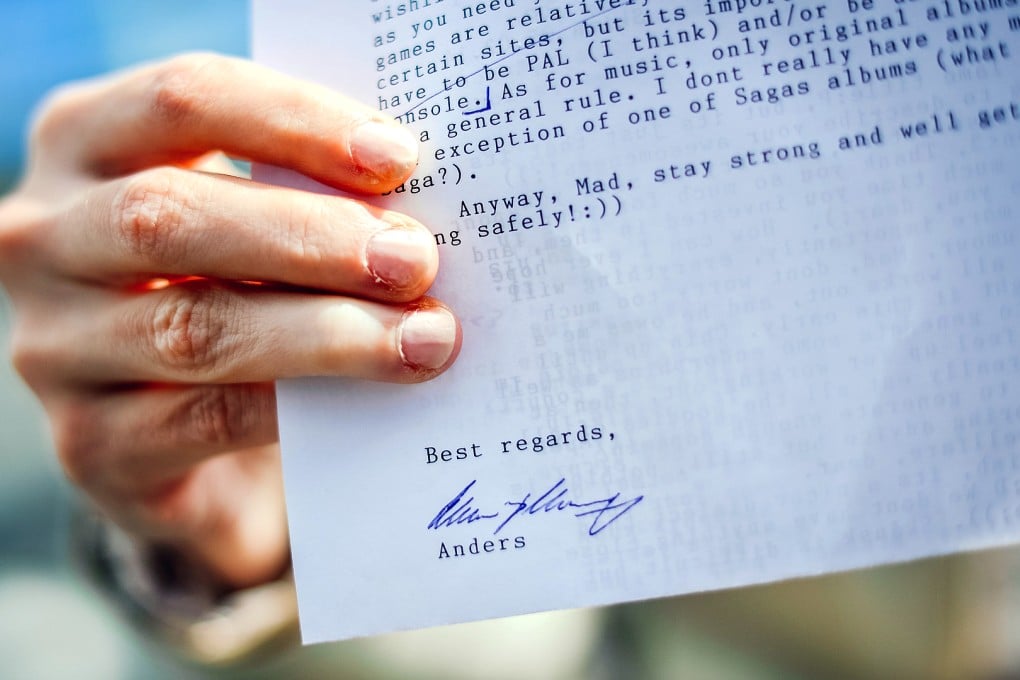 as you need
games are relatively
certain sites, but its
have to be PAL (I think) and/or be
nsole. As for music, only original albums
a general rule. I dont really have any m
exception of one of Sagas albums (what
aga?).
Anyway, Mad, stay strong and well get
ng safely!:))
Best regards,
Anders